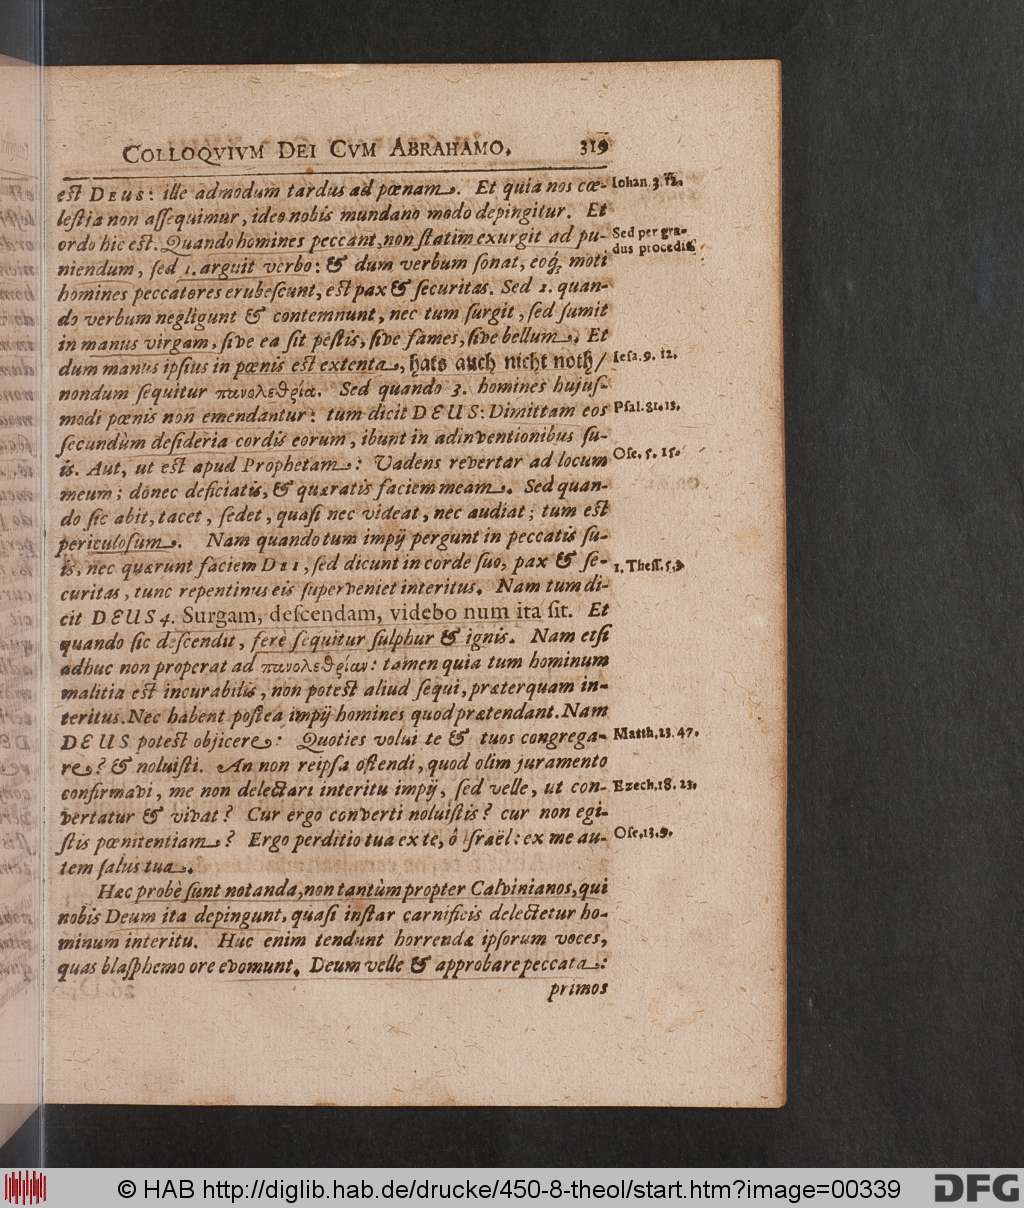 COLLOQVIVM DEI CVM ABRAHAMO. 319
est DEUS: ille admodum tardus ad pœnam. Et quia nos cœ-
Iohan. 3. 12.
lestia non assequimur, ideo nobis mundano modo depingitur. Et
ordo hic est. Quando homines peccant, non statim exurgit ad pu-
Sed per gra-
dus procedit.
niendum, sed 1. arguit verbo: & dum verbum sonat, eoq́; moti
homines peccatores erubescunt, est pax & securitas. Sed 2. quan-
do verbum negligunt & contemnunt, nec tum surgit, sed sumit
in manus virgam, sive ea sit pestis, sive fames, sive bellum. Et
dum manus ipsius in pœnis est extenta, hats auch nicht noth/
Iesa. 9. 12.
nondum sequitur πανολεθρία. Sed quando 3. homines hujus-
modi pœnis non emendantur: tum dicit DEUS: Dimittam eos
Psal. 81. 13.
secundùm desideria cordis eorum, ibunt in adinventionibus su-
is. Aut, ut est apud Prophetam: Vadens revertar ad locum
Ose. 5. 15.
meum; donec deficiatis, & quæratis faciem meam. Sed quan-
do sic abit, tacet, sedet, quasi nec videat, nec audiat; tum est
periculosum. Nam quando tum impij pergunt in peccatis su-
is, nec quærunt faciem DEI, sed dicunt in corde suo, pax & se-
1. Thess. 5. 3.
curitas, tunc repentinus eis superveniet interitus. Nam tum di-
cit DEUS 4. Surgam, descendam, videbo num ita sit. Et
quando sic descendit, ferè sequitur sulphur & ignis. Nam etsi
adhuc non properat ad πανολεθρίαν: tamen quia tum hominum
malitia est incurabilis, non potest aliud sequi, præterquam in-
teritus. Nec habent postea impij homines quod prætendant. Nam
DEUS potest objicere: Quoties volui te & tuos congrega-
Matth. 23. 47.
re? & noluisti. An non reipsa ostendi, quod olim juramento
confirmavi, me non delectari interitu impij, sed velle, ut con-
Ezech. 18. 23.
vertatur & vivat? Cur ergo converti noluistis? cur non egi-
stis pœnitentiam? Ergo perditio tua ex te, ô Israël: ex me au-
Ose. 13. 9.
tem salus tua.
Hæc probè sunt notanda, non tantùm propter Calvinianos, qui
nobis Deum ita depingunt, quasi instar carnificis delectetur ho-
minum interitu. Huc enim tendunt horrendæ ipsorum voces,
quas blasphemo ore evomunt. Deum velle & approbare peccata:
primos
© HAB http://diglib.hab.de/drucke/450-8-theol/start.htm?image=00339
DFG